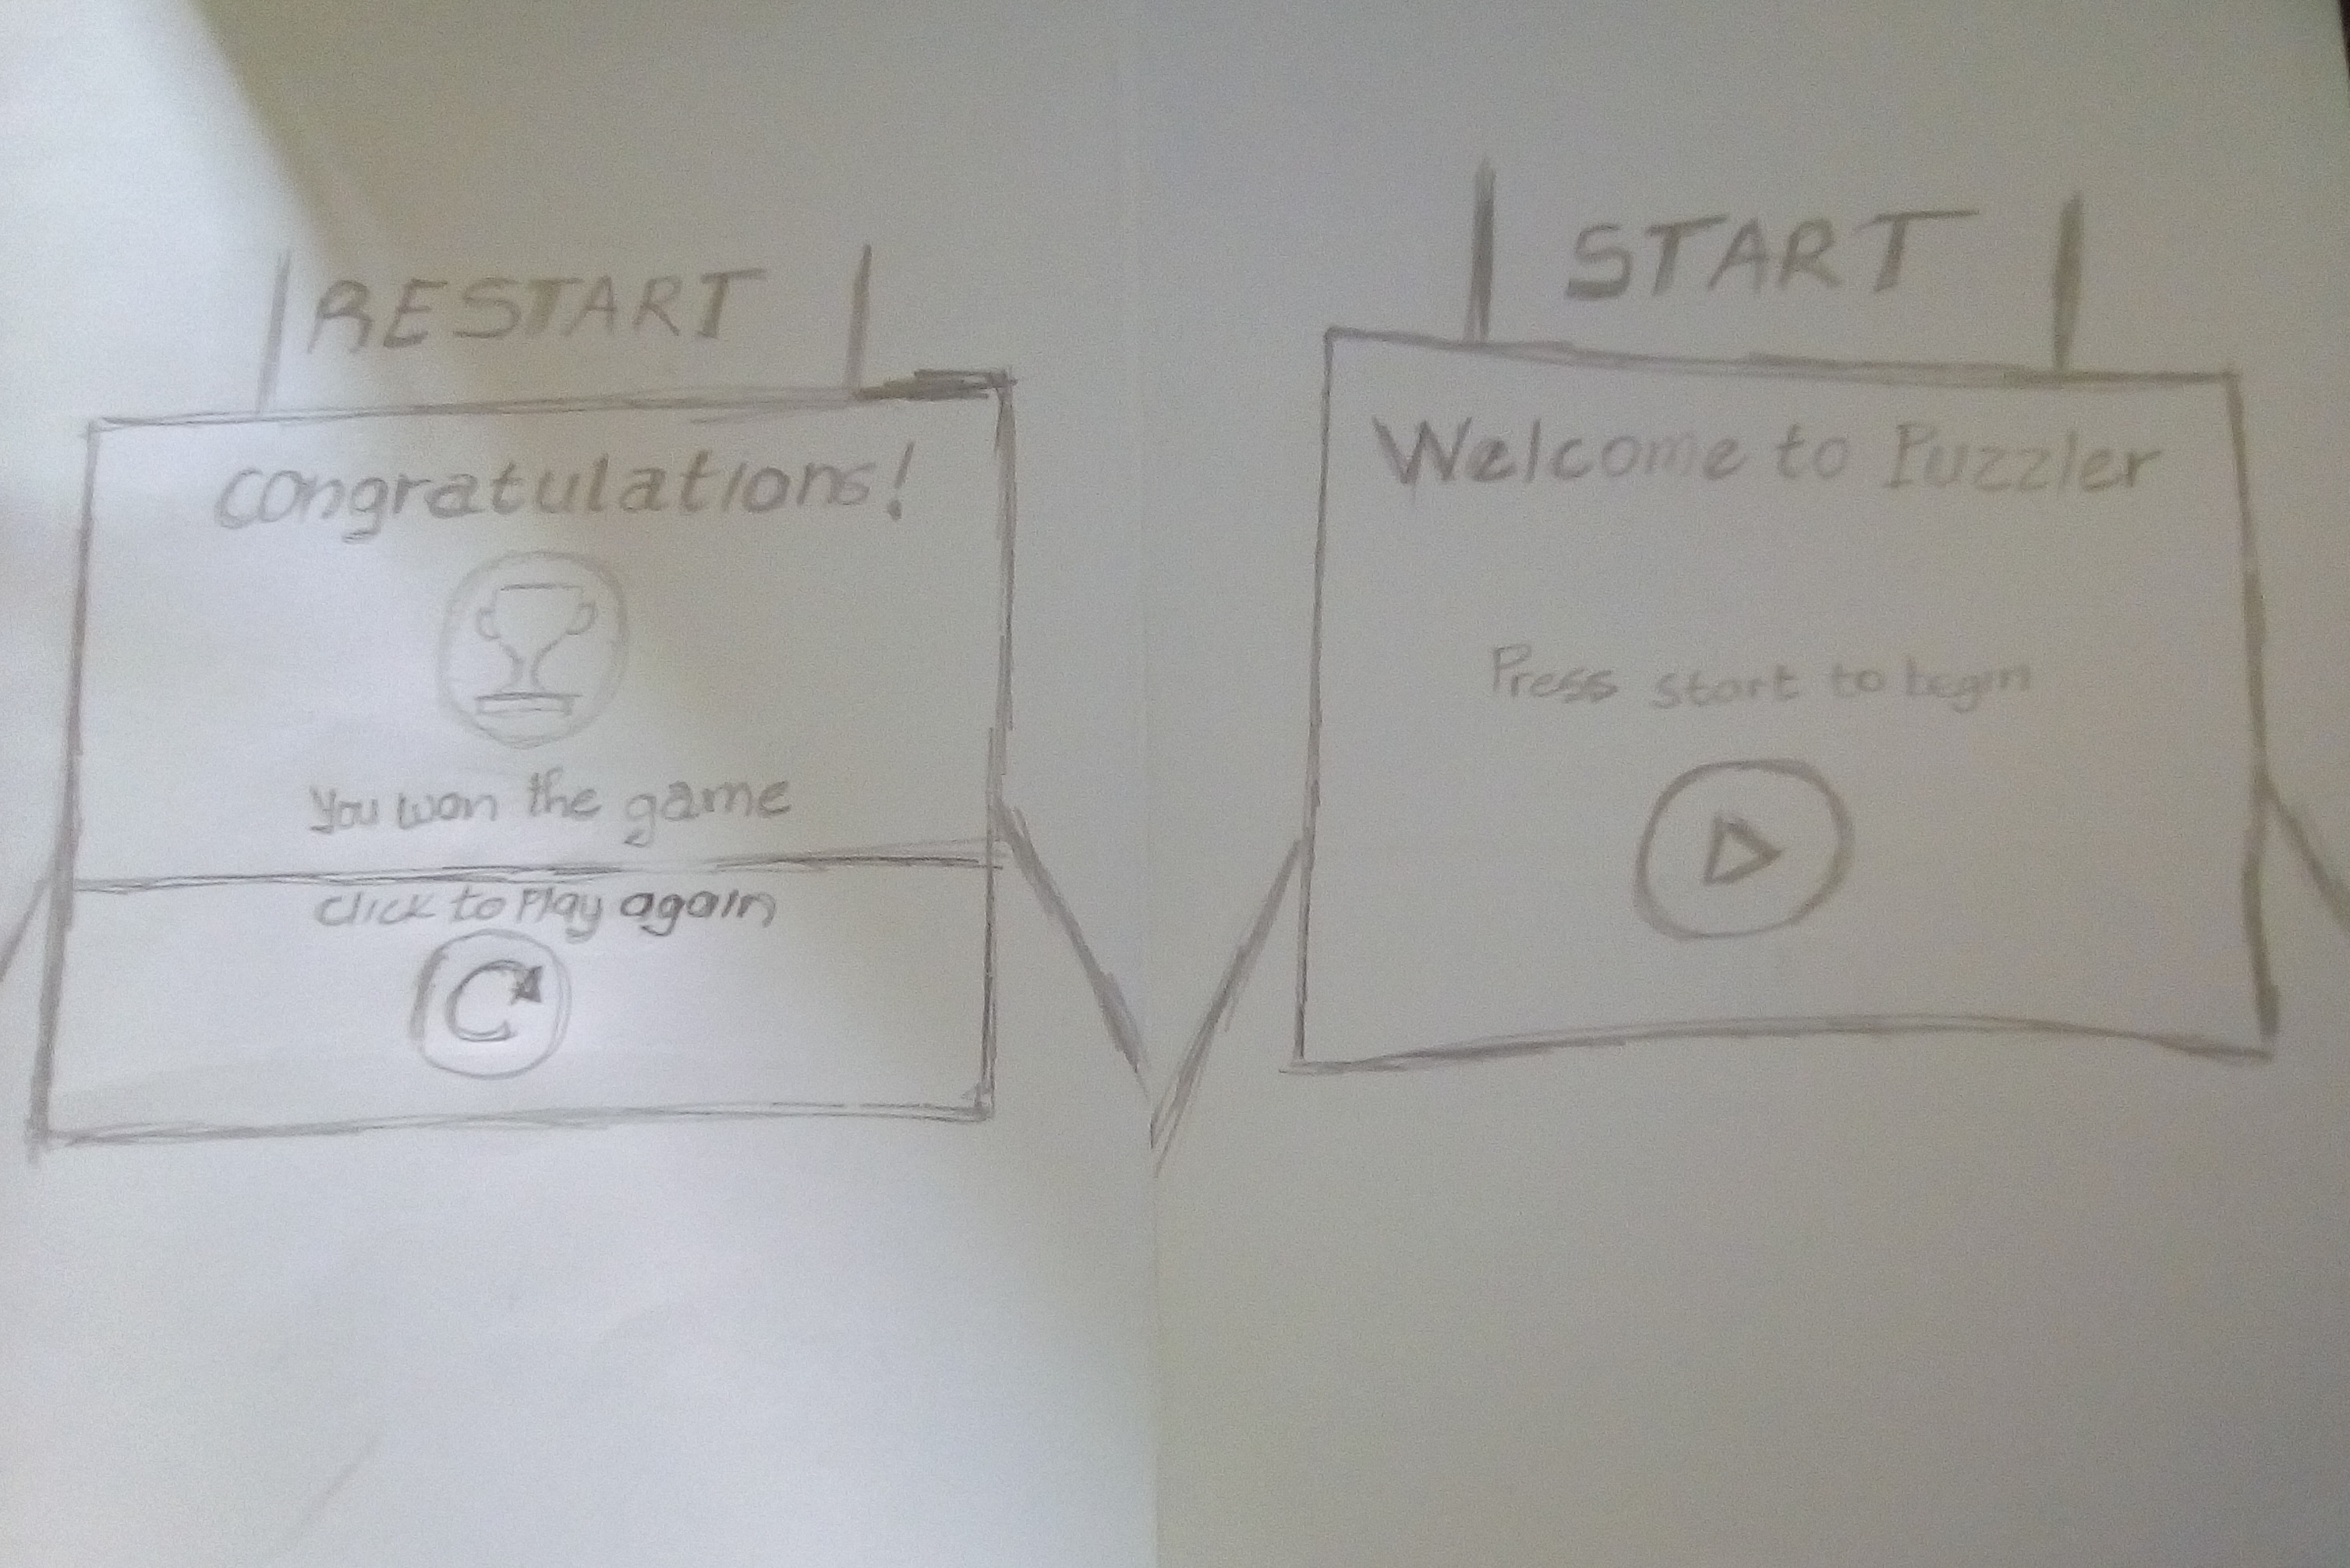 RESTART
congratulations!
You won the game
click to Play again
START
Welcome to Puzzler
Press start to begin